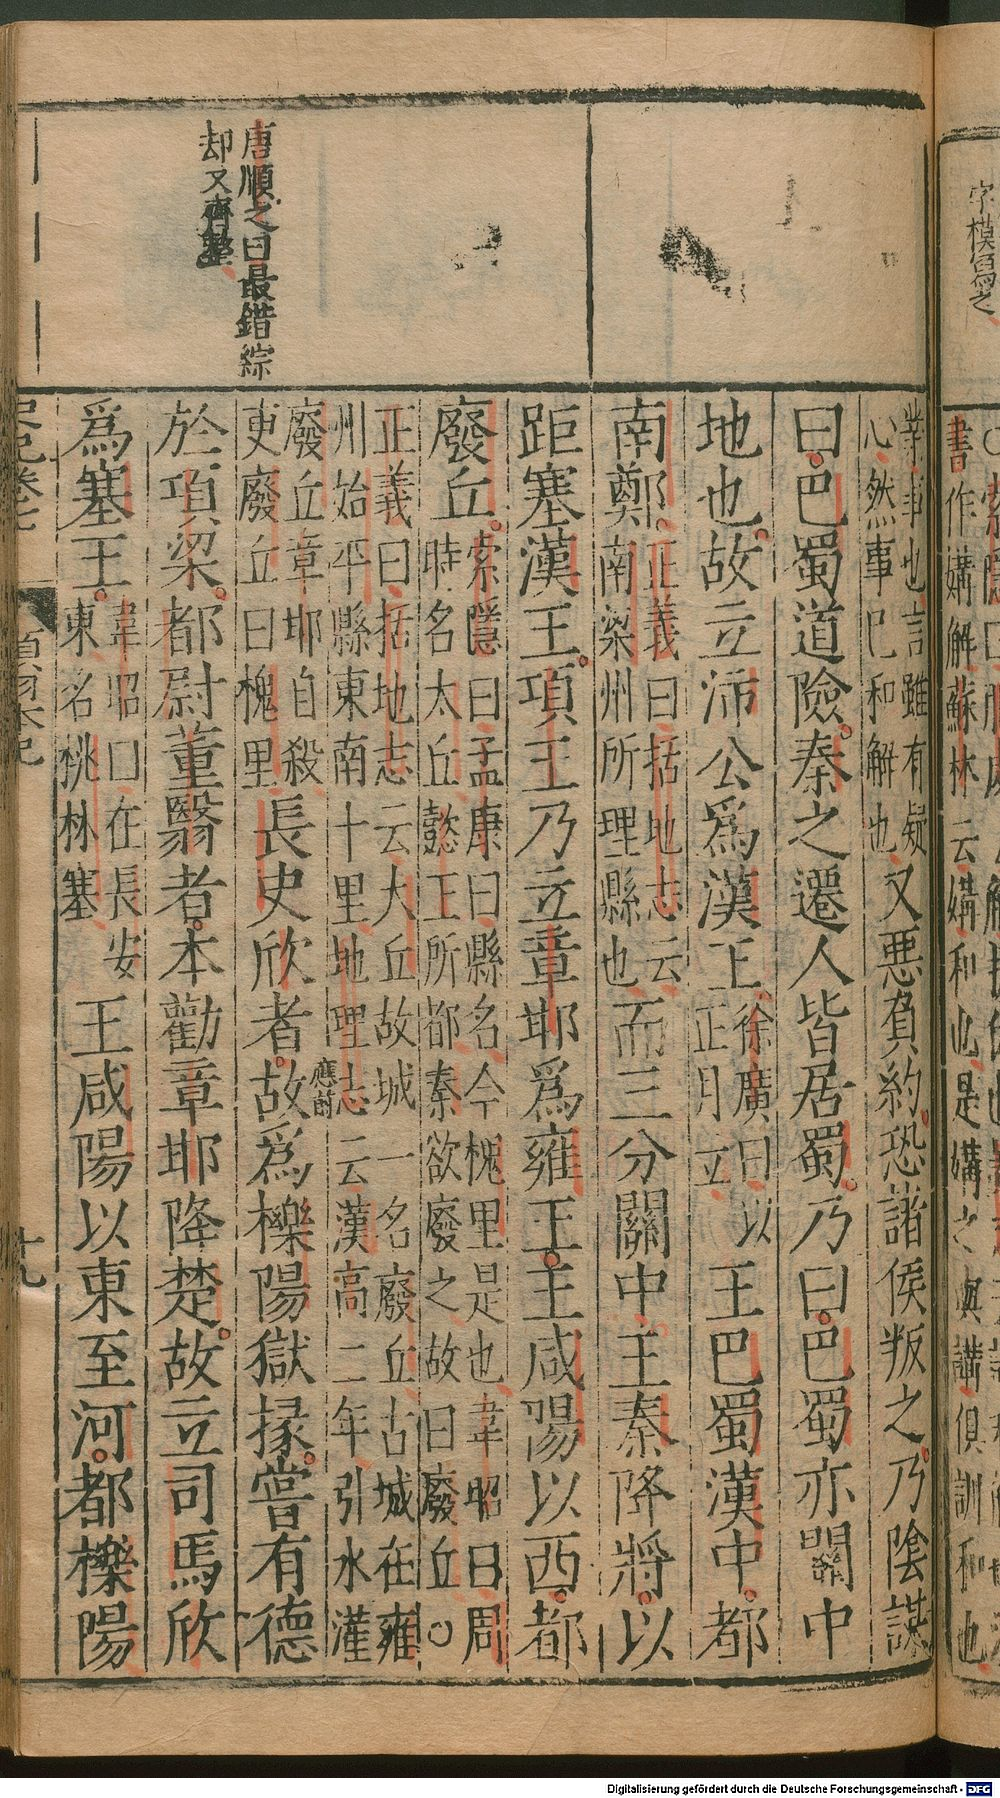 唐順之曰最錯綜
却又齊整
業事也言雖有疑
心然事已和解也
又惡負約恐諸侯叛之乃陰謀
曰巴蜀道險秦之遷人皆居蜀乃曰巴蜀亦關中
地也故立沛公爲漢王
徐廣曰以
正月立
王巴蜀漢中都
南鄭
正義曰括地志云
南梁州所理縣也
而三分關中主秦降將以
距塞漢王項王乃立章邯爲雍王王咸陽以西都
廢丘
索隱曰孟康曰縣名今槐里是也韋昭曰周
時名犬丘懿王所都秦欲廢之故曰廢丘○
正義曰括地志云犬丘故城一名廢丘古城在雍
州始平縣東南十里地理志云漢高二年引水灌
應前
廢丘章邯自殺
更廢丘曰槐里
長史欣者故爲櫟陽獄掾嘗有德
於項梁都尉董翳者本勸章邯降楚故立司馬欣
爲塞王
韋昭曰在長安
東名桃林塞
王咸陽以東至河都櫟陽
史記卷七
項羽本紀
十九
字模寫之
書作媾解蘇林云媾和也是媾之與講俱訓和也
Digitalisierung gefördert durch die Deutsche Forschungsgemeinschaft - DFG